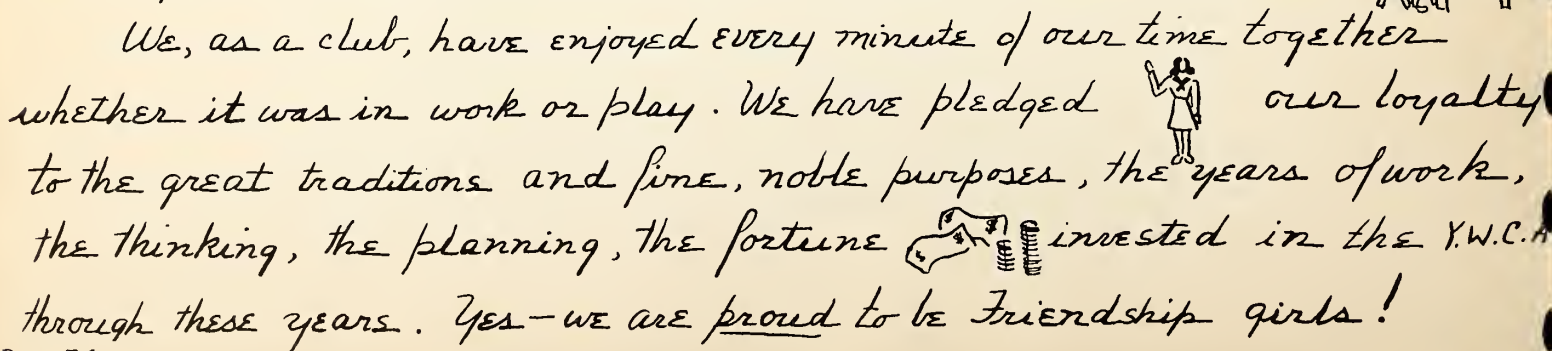 We, as a club, have enjoyed every minute of our time together
whether it was in work or play. We have pledged our loyalty
to the great traditions and fine, noble purposes, the years of work,
the thinking, the planning, the fortune invested in the Y.W.C.A
through these years. Yes - we are proud to be Friendship girls!